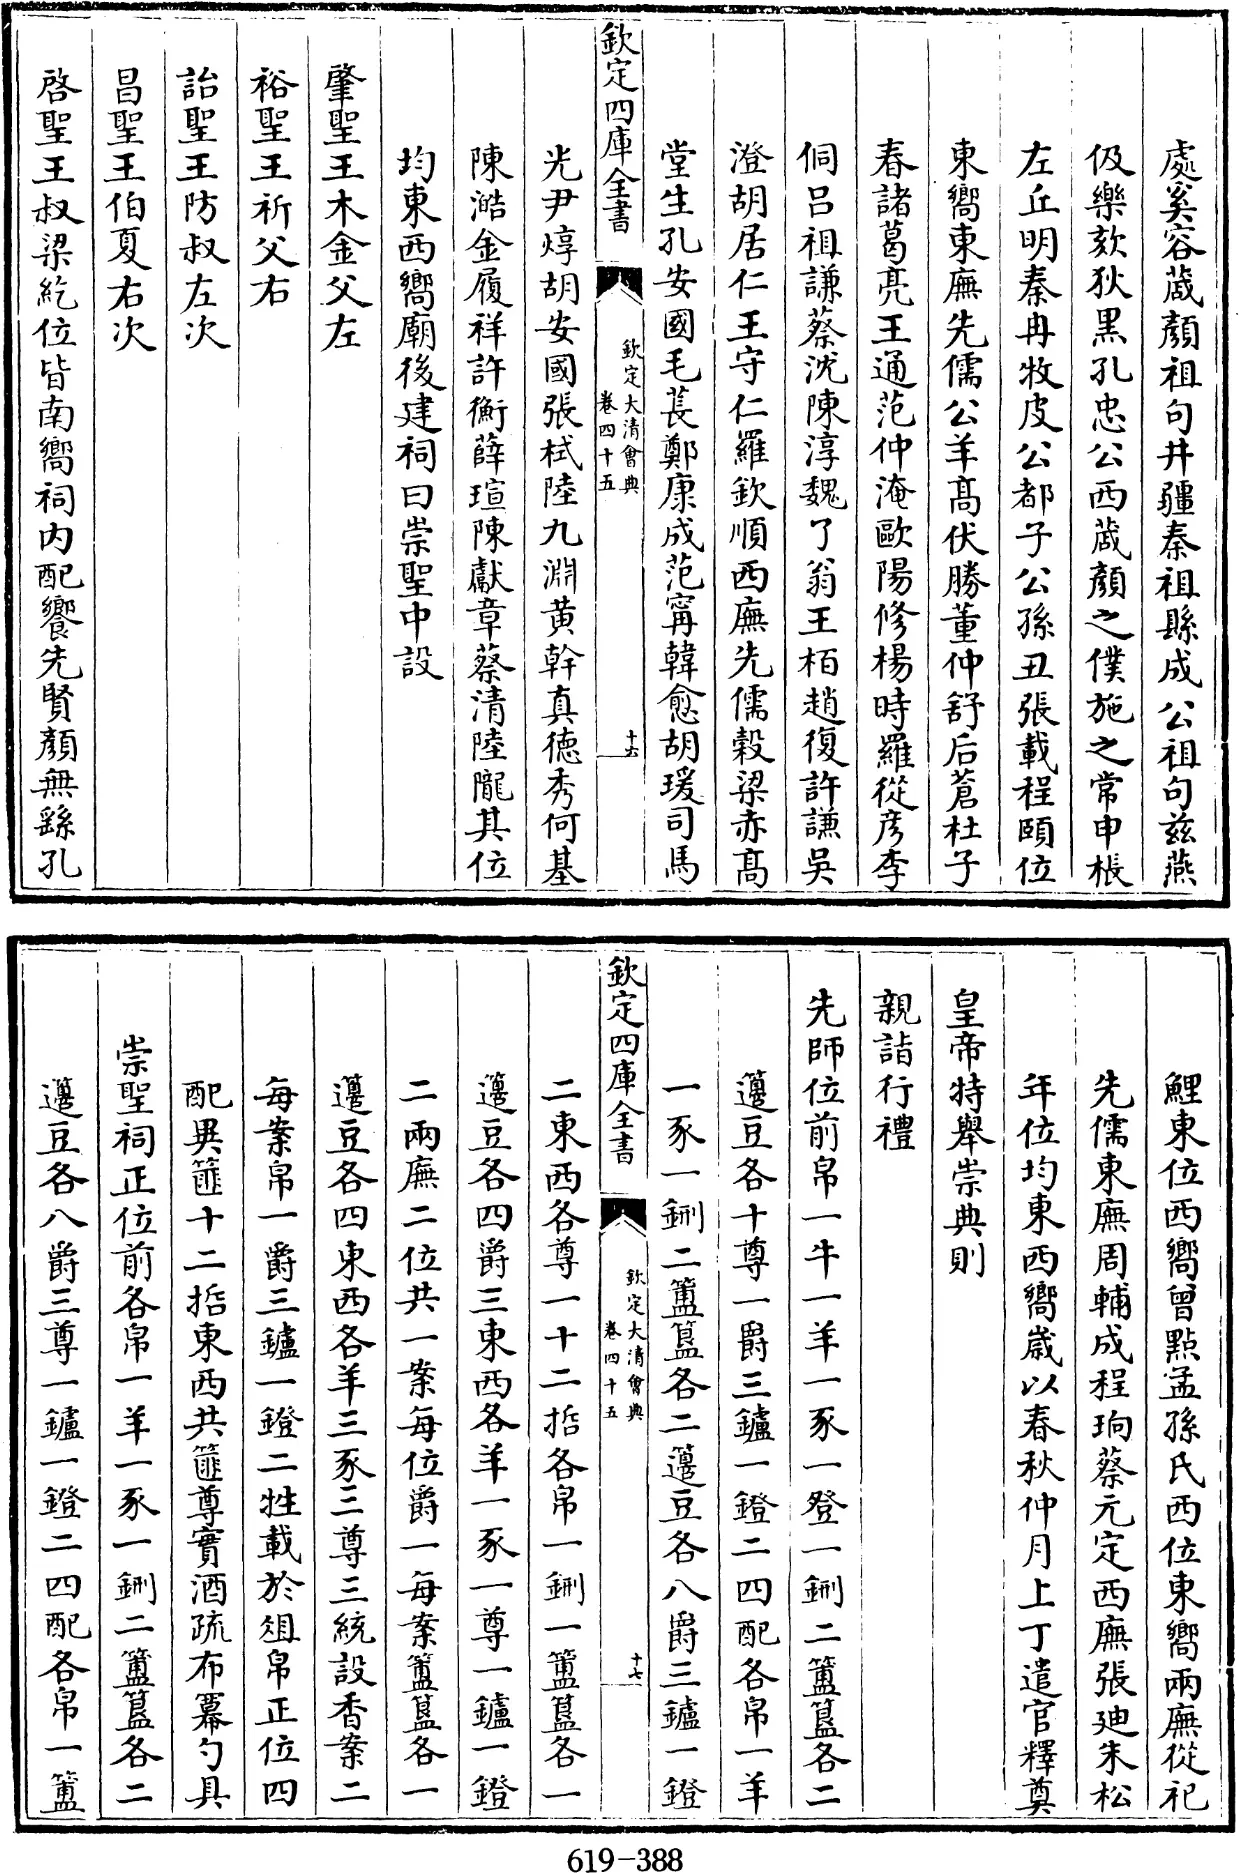 處奚容蒧顔祖句井疆秦祖縣成公祖句兹燕
伋樂欬狄黑孔忠公西蒧顔之僕施之常申棖
左丘明秦冉牧皮公都子公孫丑張載程頤位
東嚮東廡先儒公羊髙伏勝董仲舒后蒼杜子
春諸葛亮王通范仲淹歐陽修楊時羅從彦李
侗吕祖謙蔡沈陳淳魏了翁王柏趙復許謙吳
澄胡居仁王守仁羅欽順西廡先儒榖梁赤髙
堂生孔安國毛萇鄭康成范甯韓愈胡瑗司馬
欽定四庫全書
欽定大清會典
卷四十五
十六
光尹焞胡安國張栻陸九淵黄幹真德秀何基
陳澔金履祥許衡薛瑄陳獻章蔡清陸隴其位
均東西嚮廟後建祠曰崇聖中設
肇聖王木金父左
裕聖王祈父右
詒聖王防叔左次
昌聖王伯夏右次
啓聖王叔梁紇位皆南嚮祠内配饗先賢顔無繇孔
鯉東位西嚮曾點孟孫氏西位東嚮兩廡從祀
先儒東廡周輔成程珦蔡元定西廡張廸朱松
年位均東西嚮歳以春秋仲月上丁遣官釋奠
皇帝特舉崇典則
親詣行禮
先師位前帛一牛一羊一豕一登一鉶二簠簋各二
籩豆各十尊一爵三鑪一鐙二四配各帛一羊
一豕一鉶二簠簋各二籩豆各八爵三鑪一鐙
欽定四庫全書
欽定大清會典
卷四十五
十七
二東西各尊一十二哲各帛一鉶一簠簋各一
籩豆各四爵三東西各羊一豕一尊一鑪一鐙
二兩廡二位共一案每位爵一每案簠簋各一
籩豆各四東西各羊三豕三尊三統設香案二
每案帛一爵三鑪一鐙二牲載於俎帛正位四
配異篚十二哲東西共篚尊實酒疏布冪勺具
崇聖祠正位前各帛一羊一豕一鉶二簠簋各二
籩豆各八爵三尊一鑪一鐙二四配各帛一簠
619-388